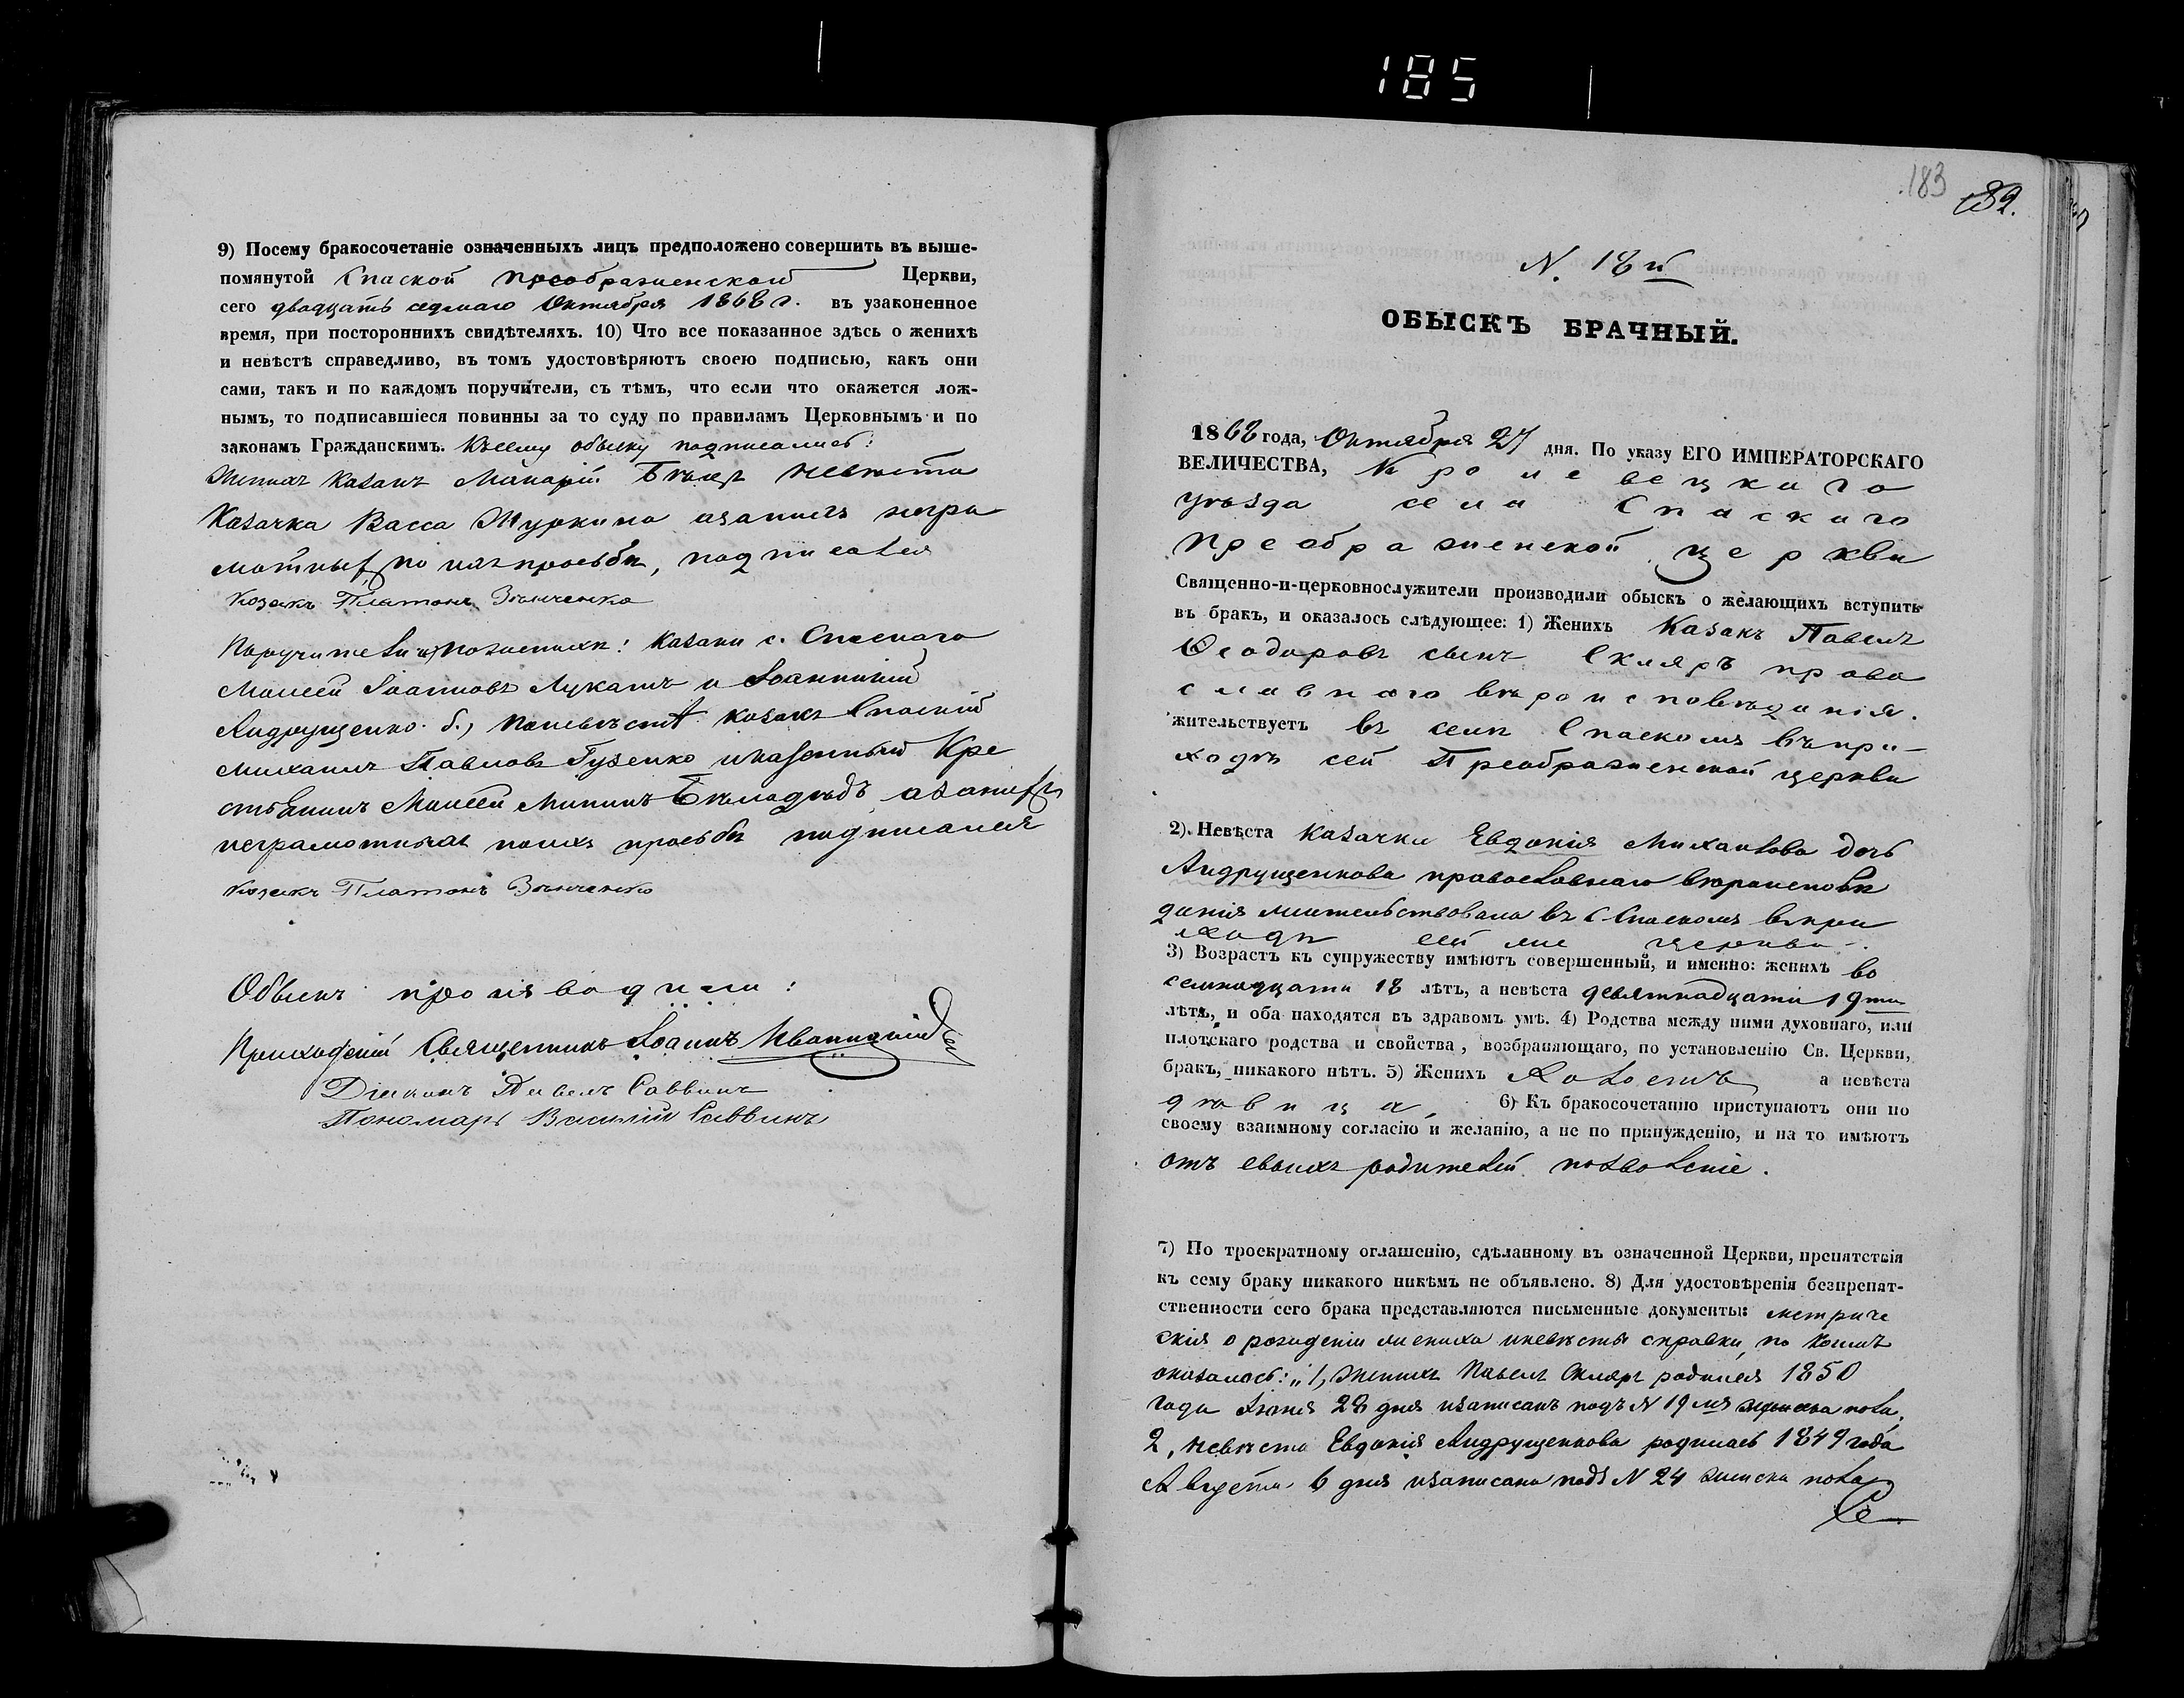 185
9) Посему бракосочетаніе означенныхъ лицъ предположено совершить въ выше-
помянутой Спаской Преображенской Церкви,
сего двадцать седмаго Октября 1868 г. въ узаконенное
время, при постороннихъ свидѣтеляхъ. 10) Что все показанное здѣсь о женихѣ
и невѣстѣ справедливо, въ томъ удостовѣряютъ своею подписью, какъ они
сами, такъ и по каждомъ поручители, съ тѣмъ, что если что окажется лож-
нымъ, то подписавшіеся повинны за то суду по правиламъ Церковнымъ и по
законамъ Гражданскимъ. Къ сему обыску подписались:
Женихъ казакъ Макарій невѣста
Казачка Васса Шуркина а за нихъ негра
мотныхъ по ихъ просьбѣ, подписался
Козакъ Платонъ Зѣнченко
Поручители по женихѣ: казаки с. Спаскаго
Моисей Іоанновъ Лукашъ и Іоанникій
Андрущенко. б., по невѣстѣ казакъ Спаскій
Михаилъ Павловъ Гузенко и казенный Кре
стьянинъ Моисей Мининъ Бѣлодѣдъ, а за нихъ
неграмотныхъ по ихъ просьбѣ подписался
козакъ Платонъ Зѣнченко
Обыскъ производили:
Приходскій Священникъ Іоаннъ Иваницкій
Діаконъ Павелъ Саввинъ
Пономарь Василій Саввинъ
183
182.
N. 18й
ОБЫСКЪ БРАЧНЫЙ.
1868 года, Октября 27 дня. По указу ЕГО ИМПЕРАТОРСКАГО
ВЕЛИЧЕСТВА, Кролевецкаго
уѣзда села Спаскаго
Преображенской церкви
Священно-и-церковнослужители производили обыскъ о желающихъ вступить
въ бракъ, и оказалось слѣдующее: 1) Женихъ Казакъ Павелъ
Ѳеодоровъ сынъ Скляръ право
славнаго вѣроисповѣданія.
жительствуетъ въ селѣ Спаскомъ въ при-
ходѣ сей Преображенской церкви
2). Невѣста казачка Евдокія Михаилова дочь
Андрущенкова православнаго вѣроисповѣ
данія жительствовала въ с. Спаскомъ въ при
ходѣ сей же церкви.
3) Возрастъ къ супружеству имѣютъ совершенный, и именно: женихъ во
семнадцати 18 лѣтъ, а невѣста девятнадцати 19ти
лѣтъ, и оба находятся въ здравомъ умѣ. 4) Родства между ними духовнаго, или
плотскаго родства и свойства, возбраняющаго, по установленію Св. Церкви,
бракъ, никакого нѣтъ. 5) Женихъ Холостъ а невѣста
дѣвица, 6) Къ бракосочетанію приступаютъ они по
своему взаимному согласію и желанію, а не по принужденію, и на то имѣютъ
отъ своихъ родителей позволеніе.
7) По троекратному оглашенію, сдѣланному въ означенной Церкви, препятствія
къ сему браку никакого никѣмъ не объявлено. 8) Для удостовѣренія безпрепят-
ственности сего брака представляются письменные документы: метриче
скія о рожденіи жениха и невѣсты справки, по коимъ
оказалось: „1, женихъ Павелъ Скляръ родился 1850
года Іюня 28 дня и записанъ подъ N 19 мужеска пола.
2, невѣста Евдокія Андрущенкова родилась 1849 года
Августа 6 дня и записана подъ N 24 женска пола